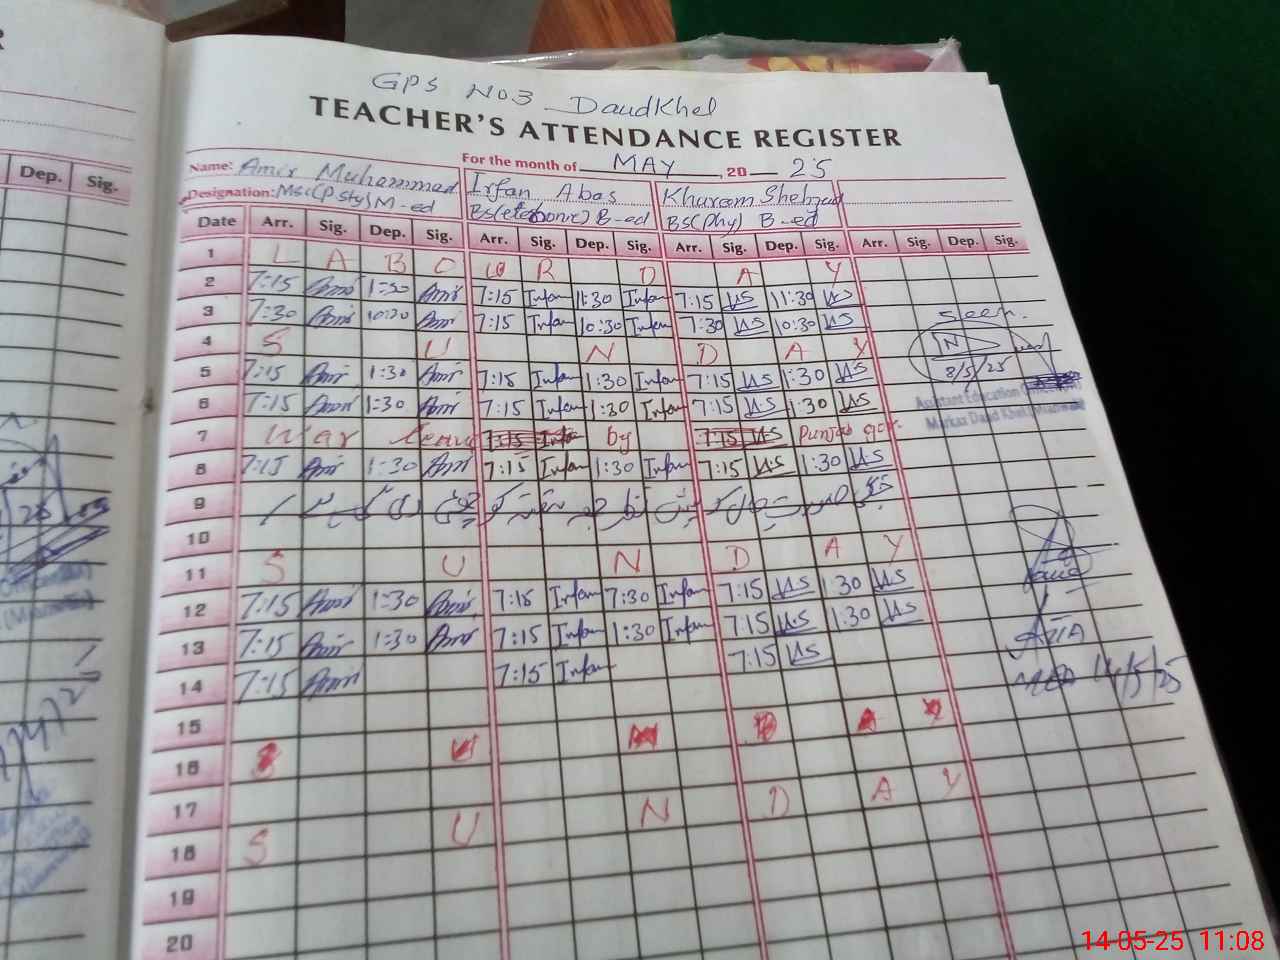 GPS NO3 DaudKhel
TEACHER'S ATTENDANCE REGISTER
Name: Amir Muhammad For the month of MAY, 20 25
Irfan Abas Khuram Shehzad
Designation: Msc(P.sty) M-ed BS( ) B-ed BS(Phy) B-ed
Dep. Sig.
Date Arr. Sig. Dep. Sig. Arr. Sig. Dep. Sig. Arr. Sig. Dep. Sig. Arr. Sig. Dep. Sig.
1 L A B O U R D A Y
2 7:15 Amir 1:30 Amir 7:15 Irfan 11:30 Irfan 7:15 US 11:30 US
3 7:30 Amir 10:30 Amir 7:15 Irfan 10:30 Irfan 7:30 US 10:30 US
seen.
4 S U N D A Y
5 7:15 Amir 1:30 Amir 7:15 Irfan 1:30 Irfan 7:15 US 1:30 US
8/5/25
6 7:15 Amir 1:30 Amir 7:15 Irfan 1:30 Irfan 7:15 US 1:30 US
Assistant Education Officer
Markaz Daud Khel (Mianwali)
7 War leave 7:15 Irfa by 7:15 US Punjab gov.
8 7:15 Amir 1:30 Amir 7:15 Irfan 1:30 Irfan 7:15 US 1:30 US
9
10
11 S U N D A Y
12 7:15 Amir 1:30 Amir 7:15 Irfan 7:30 Irfan 7:15 US 1:30 US
13 7:15 Amir 1:30 Amir 7:15 Irfan 1:30 Irfan 7:15 US 1:30 US
14 7:15 Amir 7:15 Irfan 7:15 US
14/5/25
15
16
17
18 S U N D A Y
19
20
14-05-25 11:08